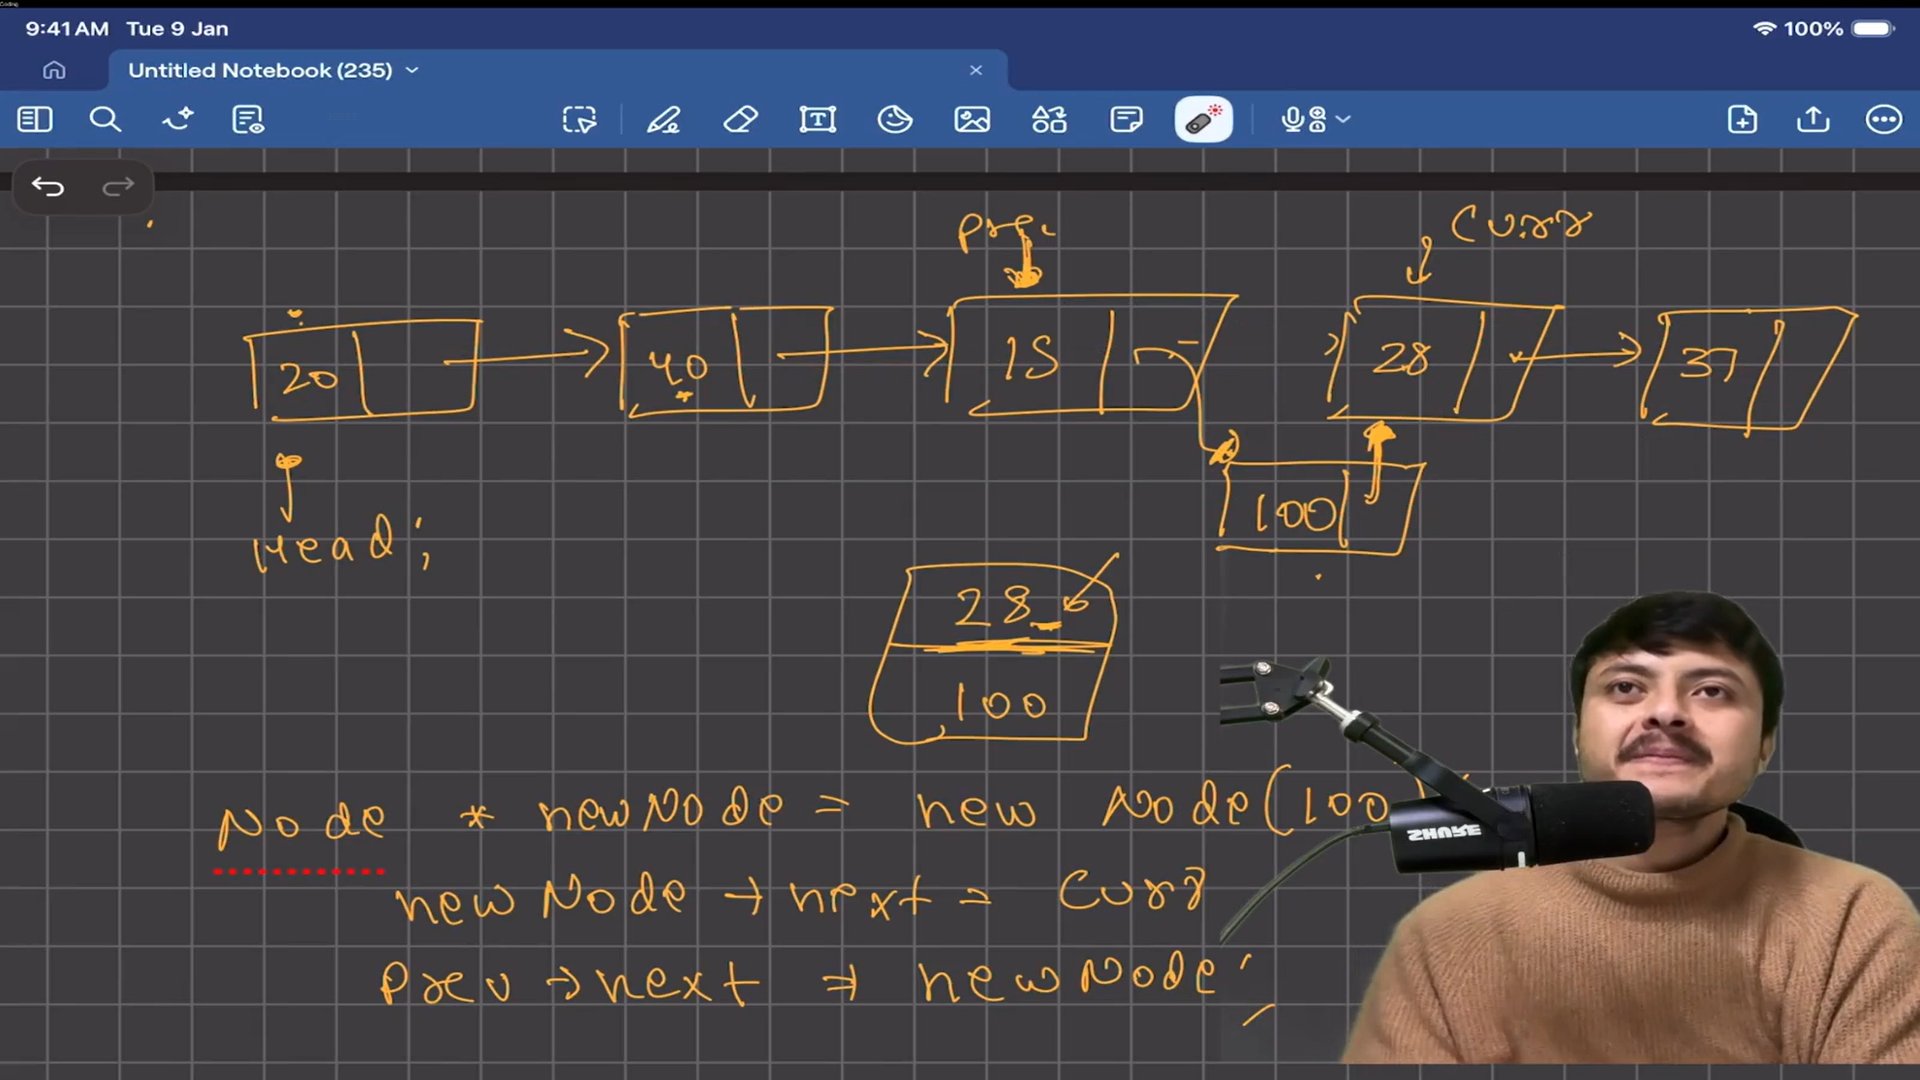 Coding
9:41 AM Tue 9 Jan
100%
Untitled Notebook (235)
Pre
Curr
20
40
15
28
37
Head;
100
28
100
Node * newNode = new Node(100)
newNode → next = Curr
Prev → next = newNode;
SHURE